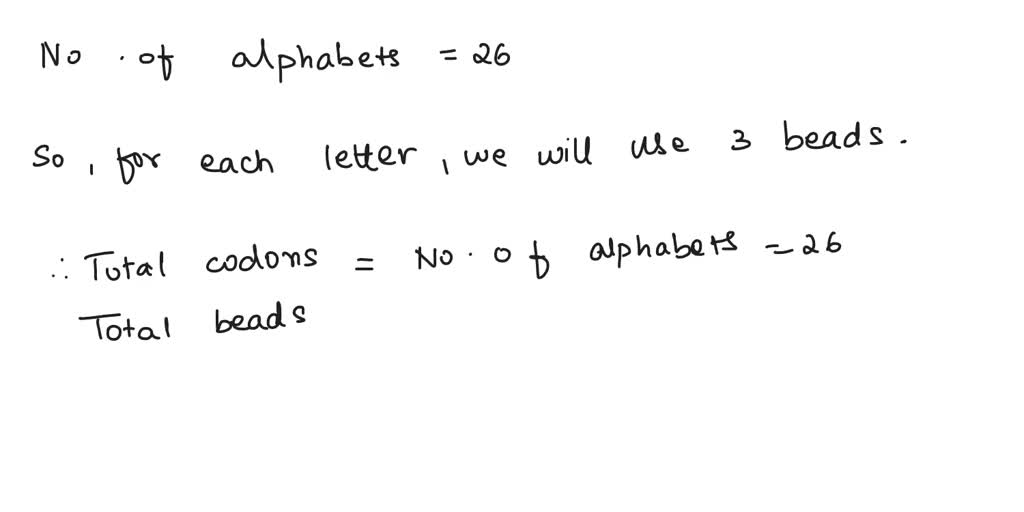 No . of alphabets = 26
So, for each letter, we will use 3 beads.
∴ Total codons = No. of alphabets = 26
Total beads